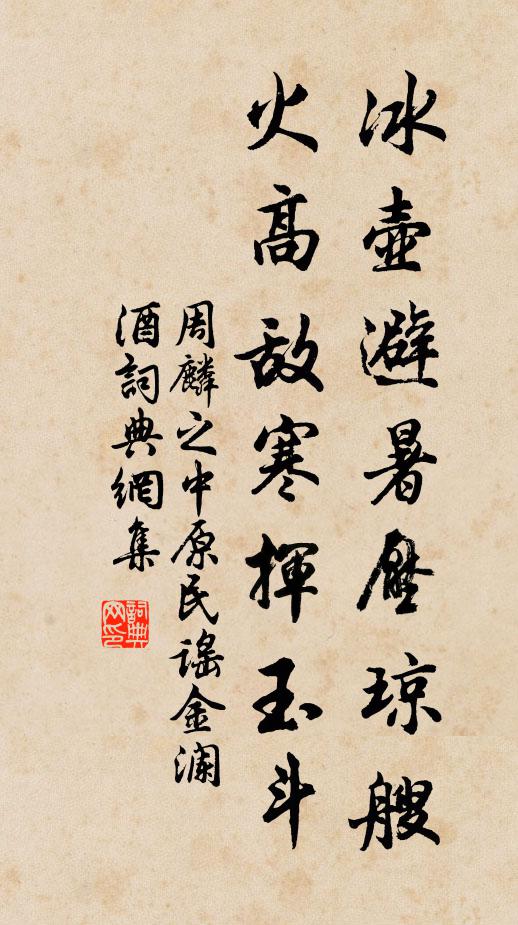 冰壺避暑壓瓊艘
火高敌寒揮玉斗
周麟之中原民謡金瀾
酒詞典網集
詞典网印